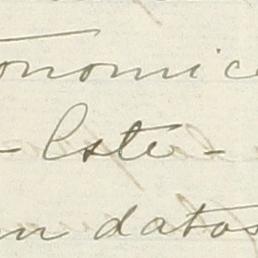 onomic
- Este -
n datos